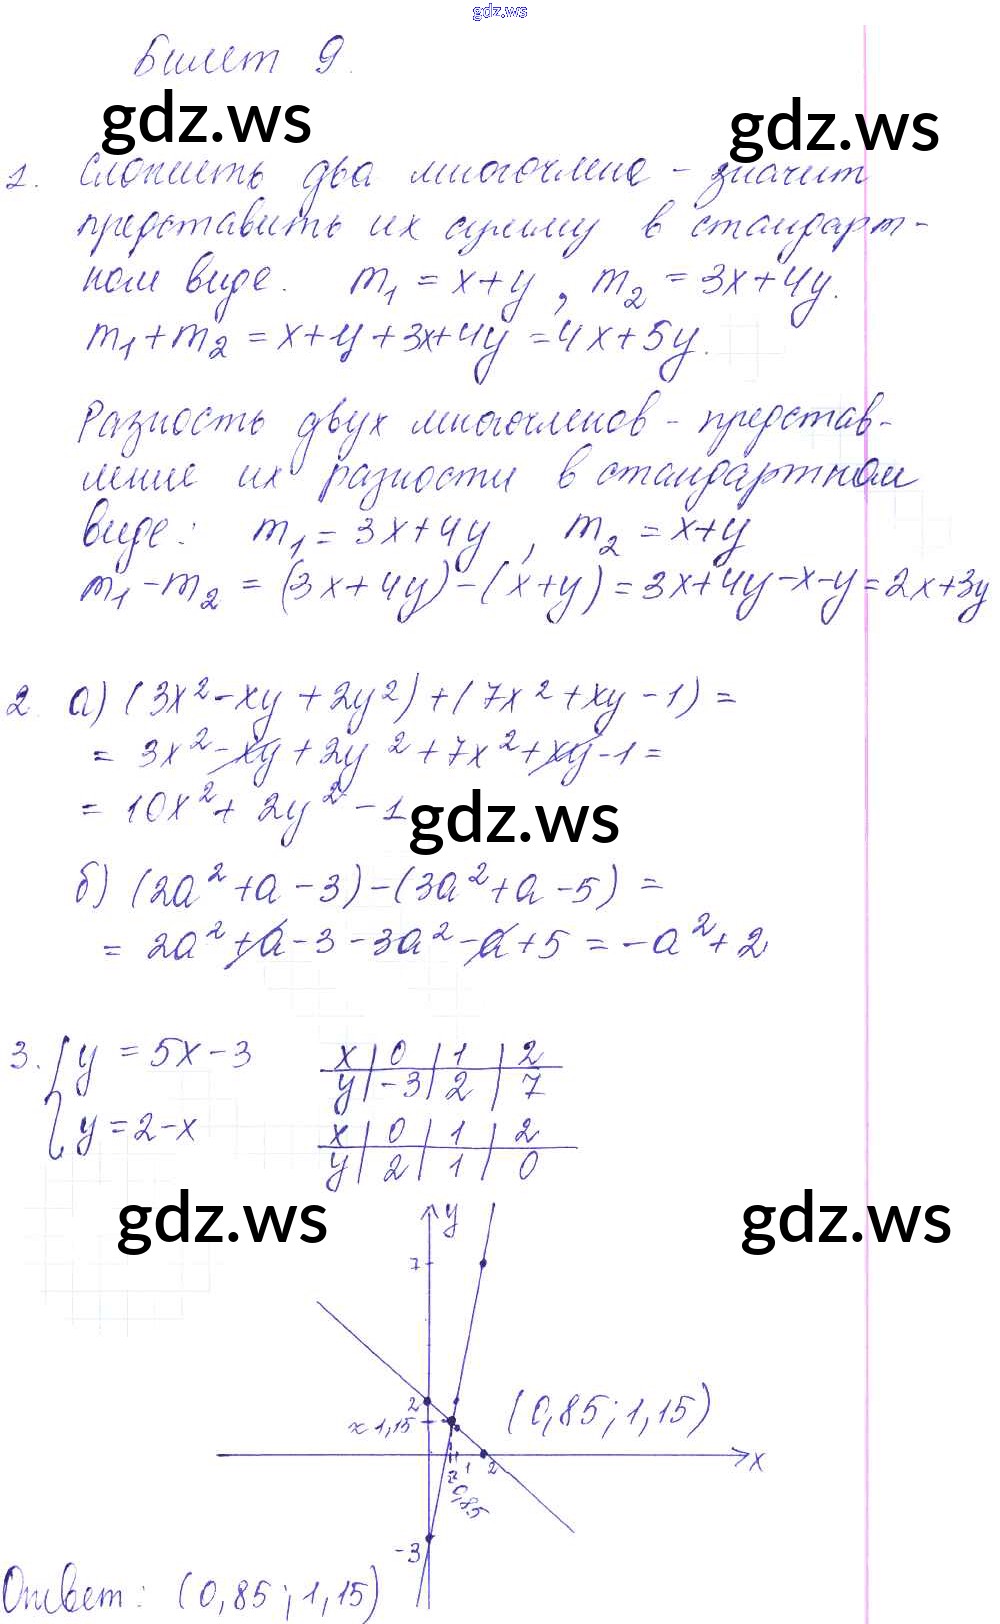 gdz.ws
Билет 9.
gdz.ws gdz.ws
1. Сложить два многочлена - значит
представить их сумму в стандарт-
ном виде. m₁ = x+y, m₂ = 3x+4y.
m₁+m₂ = x+y+3x+4y = 4x+5y.
Разность двух многочленов - представ-
ление их разности в стандартном
виде: m₁ = 3x+4y, m₂ = x+y
m₁-m₂ = (3x+4y)-(x+y) = 3x+4y-x-y = 2x+3y
2. а) (3x²-xy+2y²)+(7x²+xy-1) =
= 3x²-xy+2y²+7x²+xy-1 =
= 10x²+2y²-1
gdz.ws
б) (2a²+a-3)-(3a²+a-5) =
= 2a²+a-3-3a²-a+5 = -a²+2
3. { y = 5x-3
x | 0 | 1 | 2
y | -3 | 2 | 7
y = 2-x
x | 0 | 1 | 2
y | 2 | 1 | 0
gdz.ws gdz.ws
y
7
2
≈1,15
(0,85; 1,15)
1 2 x
≈0,85
-3
Ответ: (0,85; 1,15)